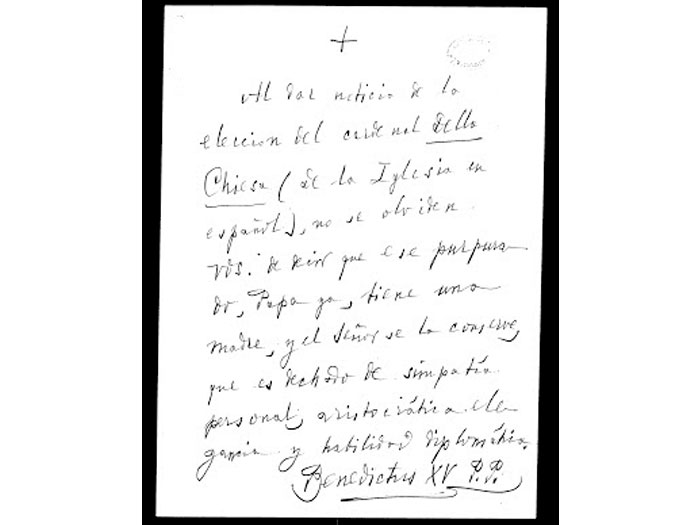 Al dar noticia de la
eleccion del cardenal Della
Chiesa (de la Iglesia en
español), no se olviden
Vds. de decir que ese purpura-
do, Papa ya, tiene una
madre, y el Señor se la conserve,
que es dechado de simpatía
personal, aristocrática ele-
gancia y habilidad diplomática.
Benedictus XV P.P.